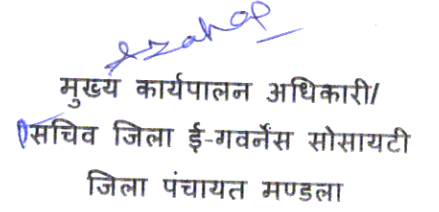 मुख्य कार्यपालन अधिकारी/
सचिव जिला ई-गवर्नेंस सोसायटी
जिला पंचायत मण्डला